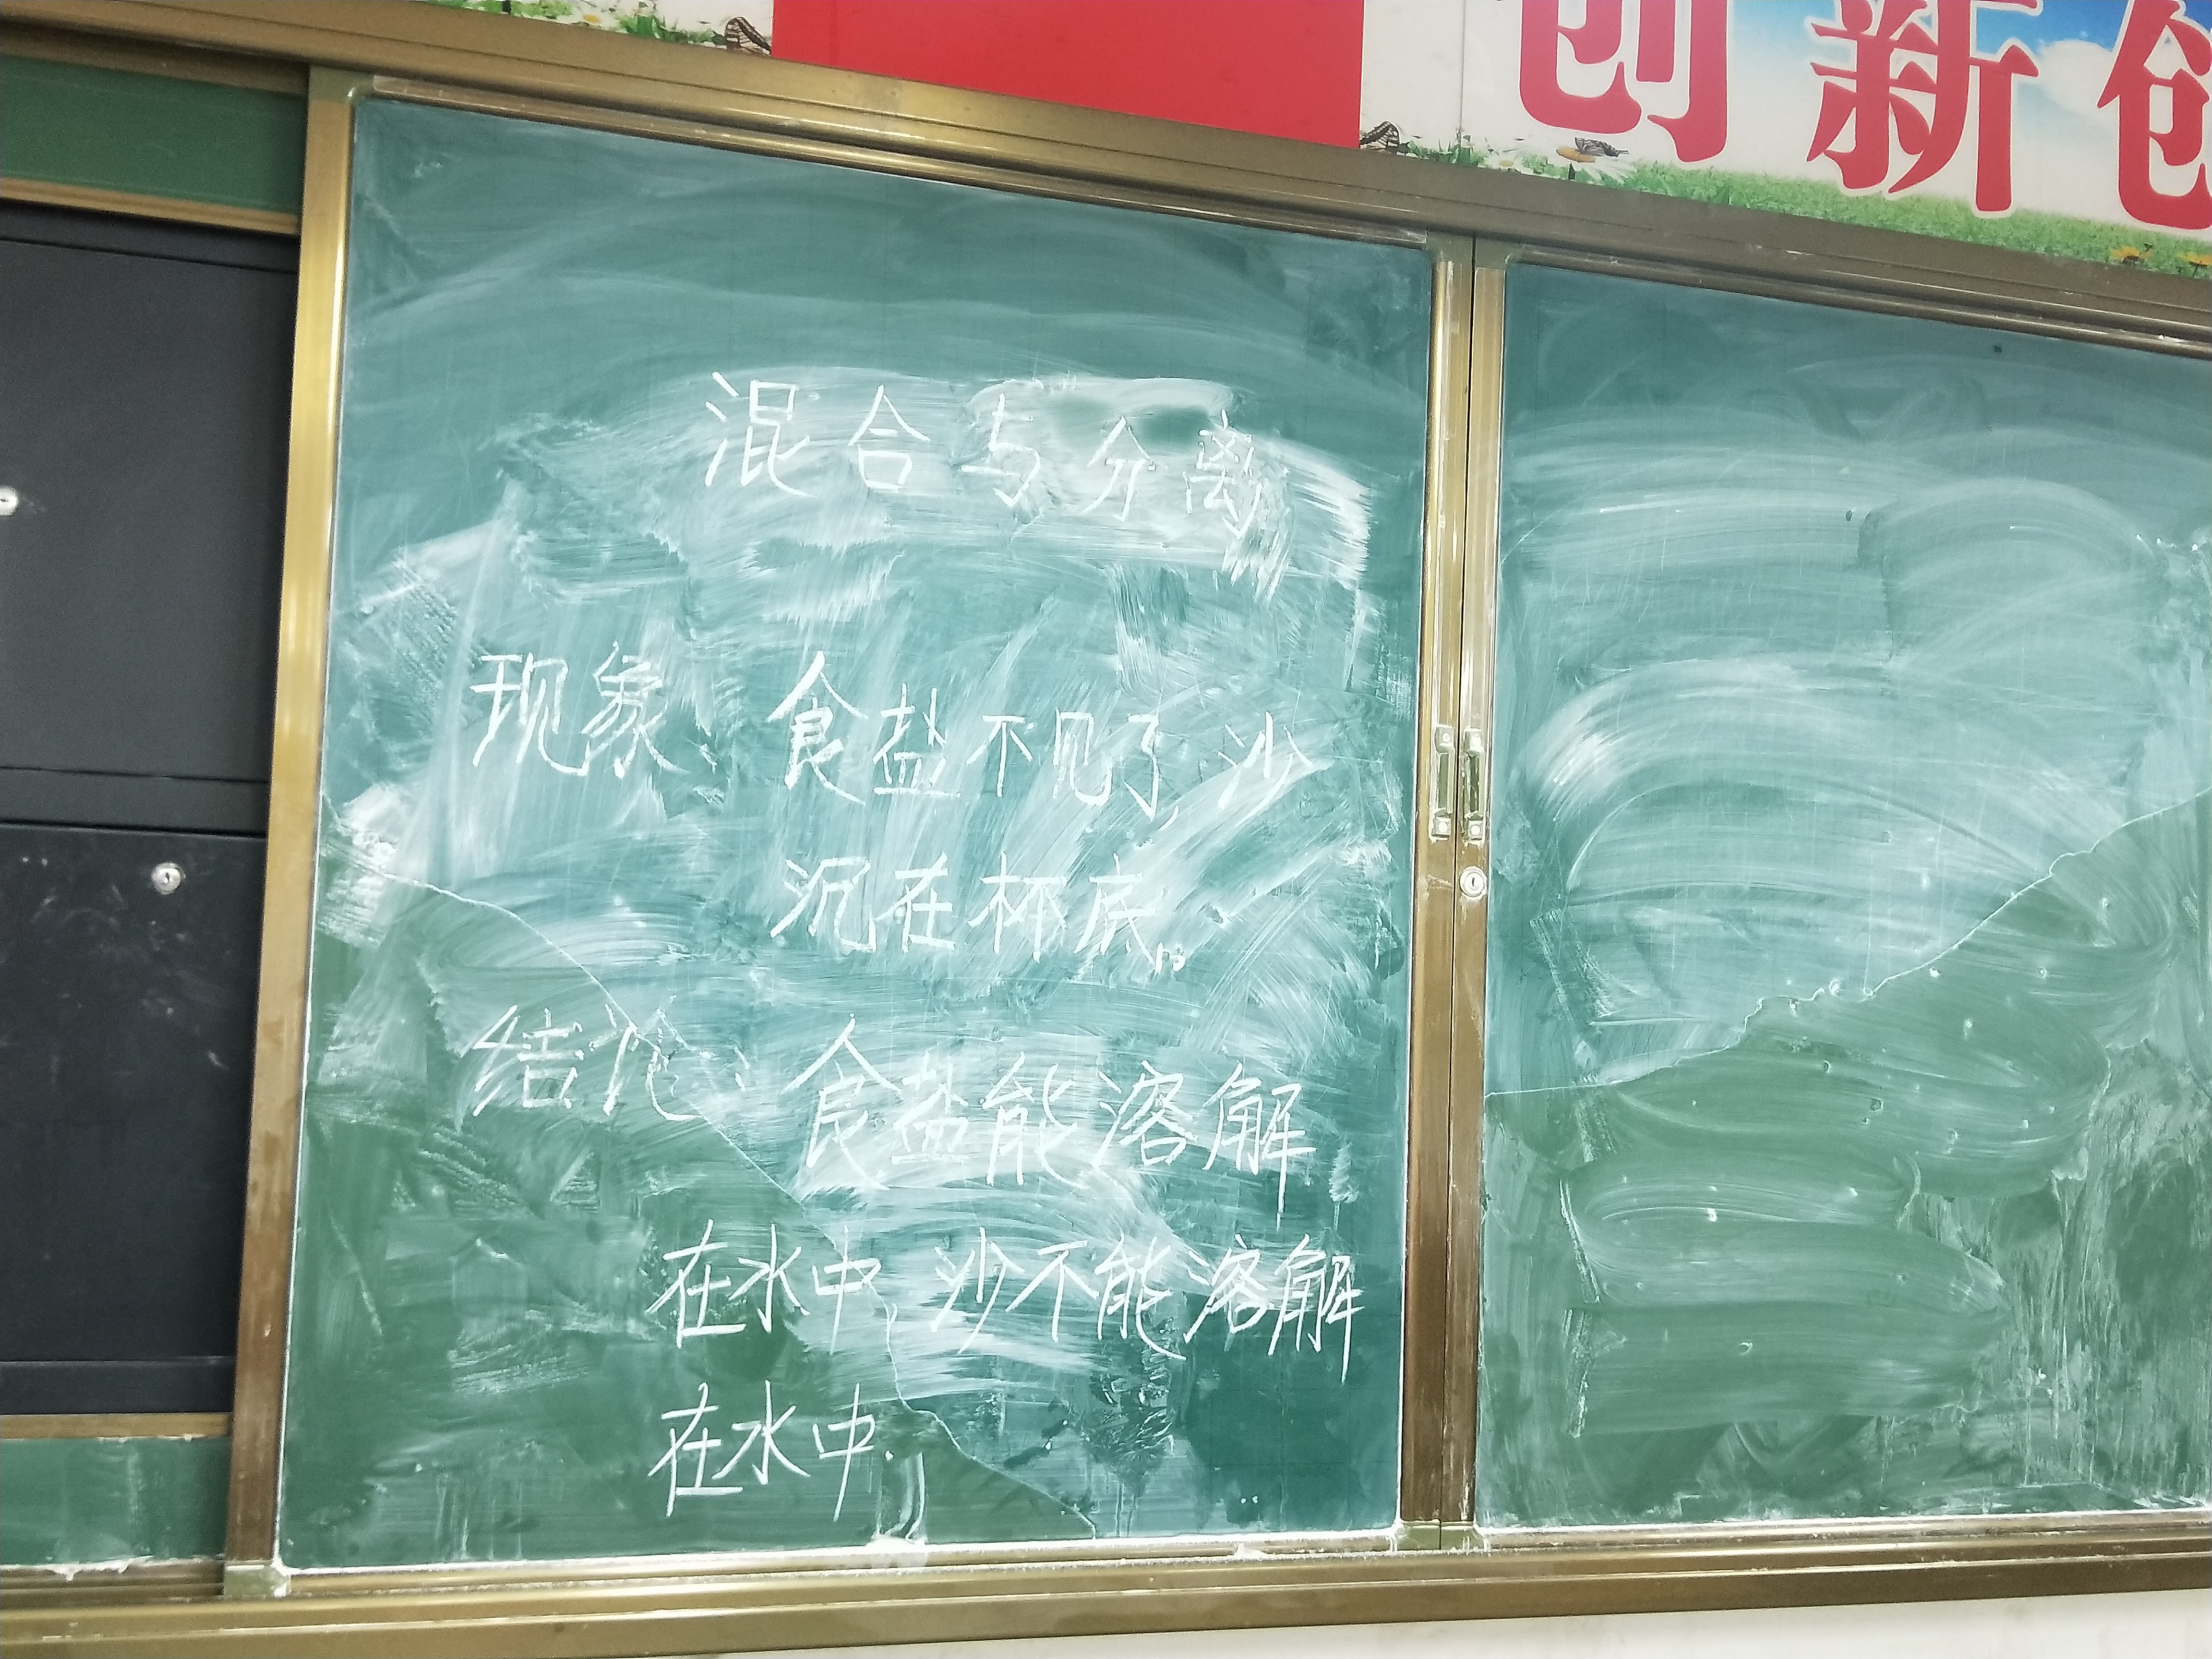 创新创
混合与分离
现象：食盐不见了，沙
沉在杯底。
结论：食盐能溶解
在水中，沙不能溶解
在水中.